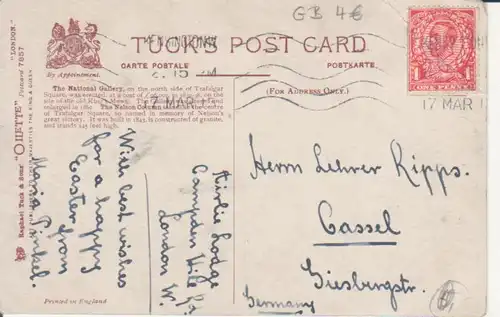 GB 4€
TUCK'S POST CARD
CARTE POSTALE
POSTKARTE.
By Appointment.
(FOR ADDRESS ONLY.)
The National Gallery, on the north side of Trafalgar
Square, was erected, at a cost of
site of the old King's Mews. The
enlarged in 1860. The Nelson Column
centre of
Trafalgar Square, so named in memory of Nelson's
great victory. It was built in 1843, is constructed of granite,
and stands 145 feet high.
2.15 PM
17 MAR 1
17 MAR 1
ONE PENNY
Herrn Lehrer Ripps.
Cassel
Giesbergstr.
Germany
Airlie Lodge
Campden Hill Rd.
London W.
With best wishes
for a happy
Easter from
Maria Dinkel.
Raphael Tuck & Sons' "OILETTE" Postcard 7957
"LONDON."
Printed in England